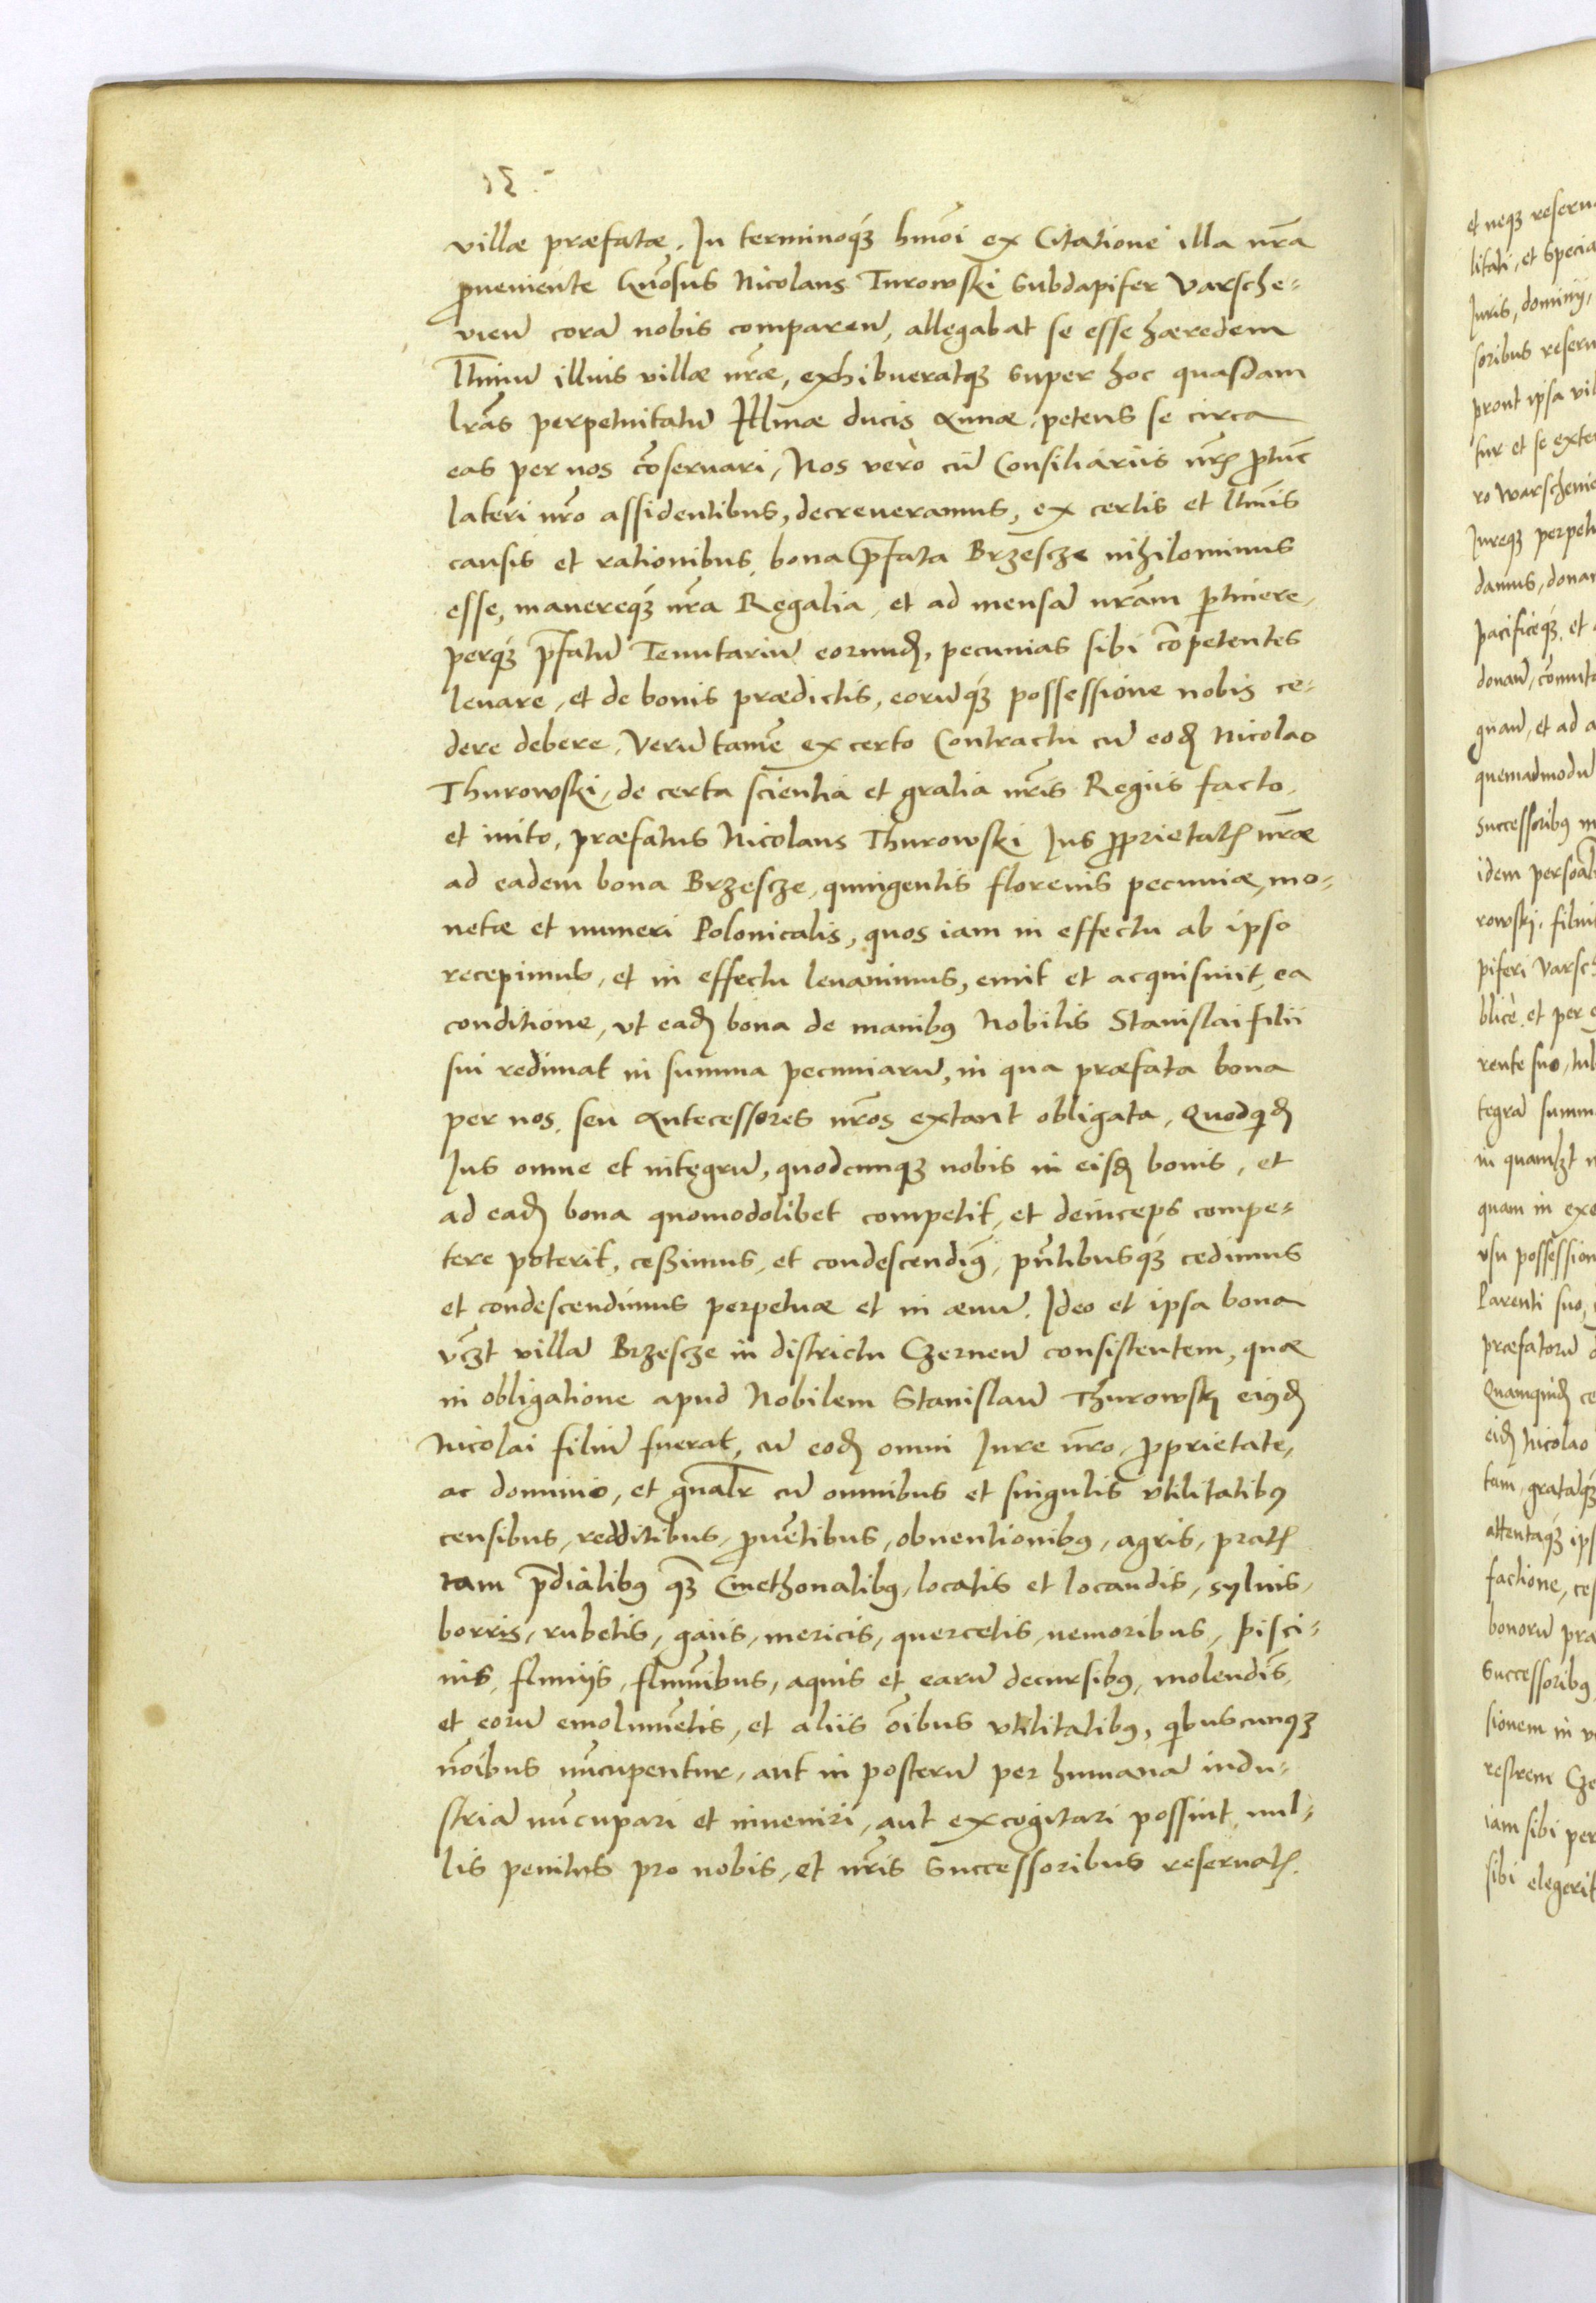 villæ præfatæ. In terminoq́ꝫ hm̃oi ex Citatione illa nr̃a
ꝓueniente Gn̄osus Nicolaus Turowski Subdapifer Varsche⸗
vieñ corã nobis compareñ, allegabat se esse hæredem
ltĩmũ illius villæ nr̃æ, exhibueratqꝫ super hoc quasdam
lr̃as perpetuitatũ Illmæ ducis Annæ, petens se circa
eas per nos cõseruari, Nos verò cũ Consiliariis nr̃is ꝓtũc
lateri nr̃o assidentibus, decreueramus, ex certis et ltĩmis
causis et rationibus, bona p̃fata Brzescze nihilominus
esse, manereq́ꝫ nr̃a Regalia, et ad mensã nr̃am ꝑtinere,
perq́ꝫ p̃fatũ Tenutariũ eorundẽ, pecunias sibi cõpetentes
leuare, et de bonis prædictis, eorũq́ꝫ possessione nobis ce⸗
dere debere, Verũ tamẽ ex certo Contractu cũ eodẽ Nicolao
Thurowski, de certa scientia et gratia nr̃is Regiis facto,
et inito, præfatus Nicolaus Thurowski Jus ꝓprietatis nr̃æ
ad eadem bona Brzescze, quingentis florenis pecuniæ, mo⸗
netæ et numeri Polonicalis, quos iam in effectu ab ipso
recepimus, et in effectu leuauimus, emit et acquisiuit, ea
conditione, vt eadẽ bona de manibꝰ Nobilis Stanislai filii
sui redimat in summa pecuniarũ, in qua præfata bona
per nos, seu Antecessores nr̃os extant obligata, Quodquidẽ
Jus omne et integrũ, quodcunqꝫ nobis in eisdẽ bonis, et
ad eadẽ bona quomodolibet competit, et deinceps compe⸗
tere poterit, ceßimus, et condescendimꝰ, pñtibusq́ꝫ cedimus
et condescendimus perpetuæ et in æuũ. Ideo et ipsa bona
vcꝫt villã Brzescze in districtu Czerneñ consistentem, quæ
in obligatione apud Nobilem Stanislaũ Thurowski eiꝰdẽ
Nicolai filiũ fuerat, cũ eodẽ omni Jure nr̃o, ꝓprietate,
ac dominio, et gñalr̃ cũ omnibus et singulis vtilitatibꝰ
censibus, redditibus, ꝓuẽtibus, obuentionibꝰ, agris, pratis
tam p̃dialibꝰ qꝫ Cmethonalibꝰ, locatis et locandis, syluis,
borris, rubetis, gaiis, mericis, quercetis, nemoribus, pisci⸗
nis, fluuiis, flumĩbus, aquis et earũ decursibꝰ, molendĩs,
et eorũ emolumẽtis, et aliis õibus vtilitatibꝰ, quibuscunqꝫ
nõibus nũcupentur, aut in posterũ per humanã indu⸗
striã nũcupari et inueniri, aut excogitari possint, nul⸗
lis penitus pro nobis, et nr̃is Successoribus reseruatis.